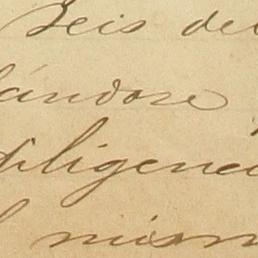 Seis del
ándose
diligenci
mism